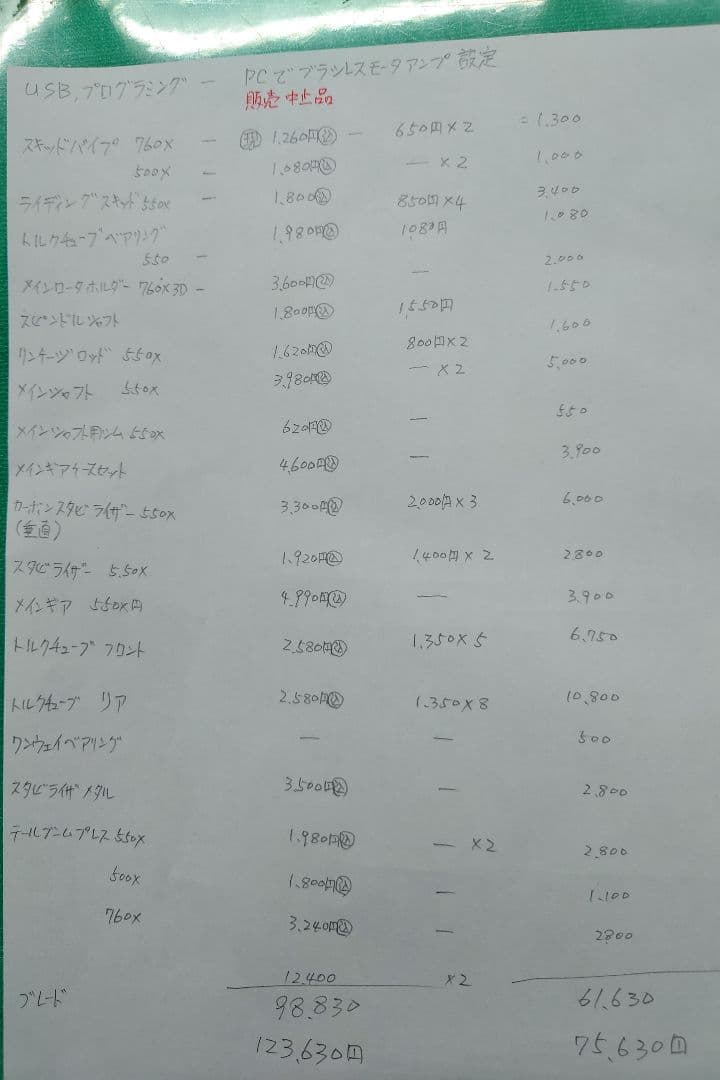 USB.プログラミング ー PCでブラシレスモータアンプ設定
販売中止品
スキッドパイプ 760X ー 現 1.260円込 ー 650円×2 =1.300
500X ー 1.080円込 ー ×2 1.000
ライディングスキッド550X ー 1.800込 850円×4 3.400
トルクチューブベアリング 1.980円込 1080円 1.080
550 ー
メインロータホルダー 760X3D ー 3.600円込 ー 2.000
スピンドルシャフト 1.800円込 1.550円 1.550
リンケージロッド 550X 1.620円込 800円×2 1.600
メインシャフト 550X 3.980円込 ー ×2 5.000
メインシャフト用シム 550X 620円込 ー 550
メインギアケースセット 4.600円込 ー 3.900
カーボンスタビライザー550X 3.300円込 2.000円×3 6.000
(垂直)
スタビライザー 5.50X 1.920円込 1.400円×2 2.800
メインギア 550X円 4.990円込 ー 3.900
トルクチューブ フロント 2.580円込 1.350×5 6.750
トルクチューブ リア 2.580円込 1.350×8 10.800
ワンウェイベアリング ー ー 500
スタビライザメタル 3.500円込 ー 2.800
テールブームブレス550X 1.980円込 ー ×2 2.800
500X 1.800円込 ー 1.100
760X 3.240円込 ー 2800
ブレード 12.400 ×2
98.830 61.630
123.630円 75.630円